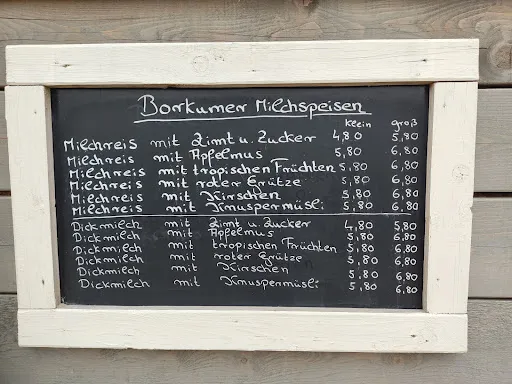 Borkumer Milchspeisen
klein groß
Milchreis mit Zimt u. Zucker 4,80 5,80
Milchreis mit Apfelmus 5,80 6,80
Milchreis mit tropischen Früchten 5,80 6,80
Milchreis mit roter Grütze 5,80 6,80
Milchreis mit Kirschen 5,80 6,80
Milchreis mit Knuspermüsli 5,80 6,80
Dickmilch mit Zimt u. Zucker 4,80 5,80
Dickmilch mit Apfelmus 5,80 6,80
Dickmilch mit tropischen Früchten 5,80 6,80
Dickmilch mit roter Grütze 5,80 6,80
Dickmilch mit Kirschen 5,80 6,80
Dickmilch mit Knuspermüsli 5,80 6,80